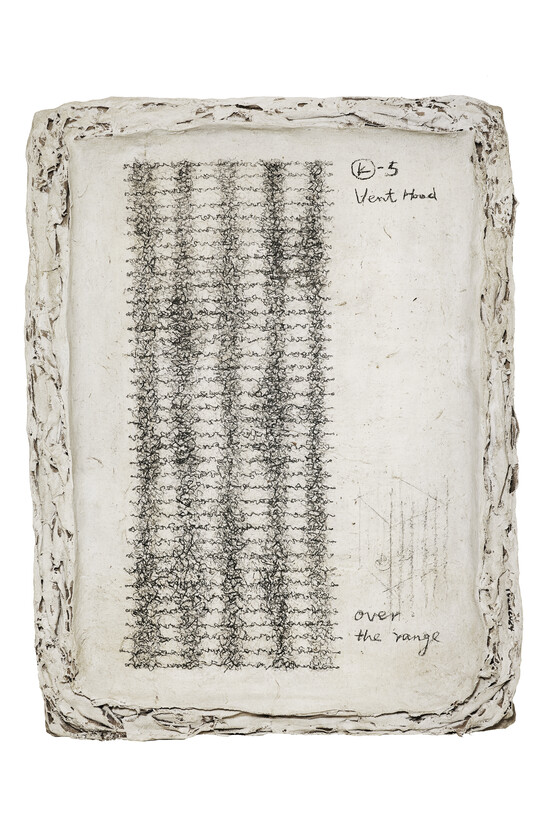 Ⓚ-5
Vent Hood
over
the range